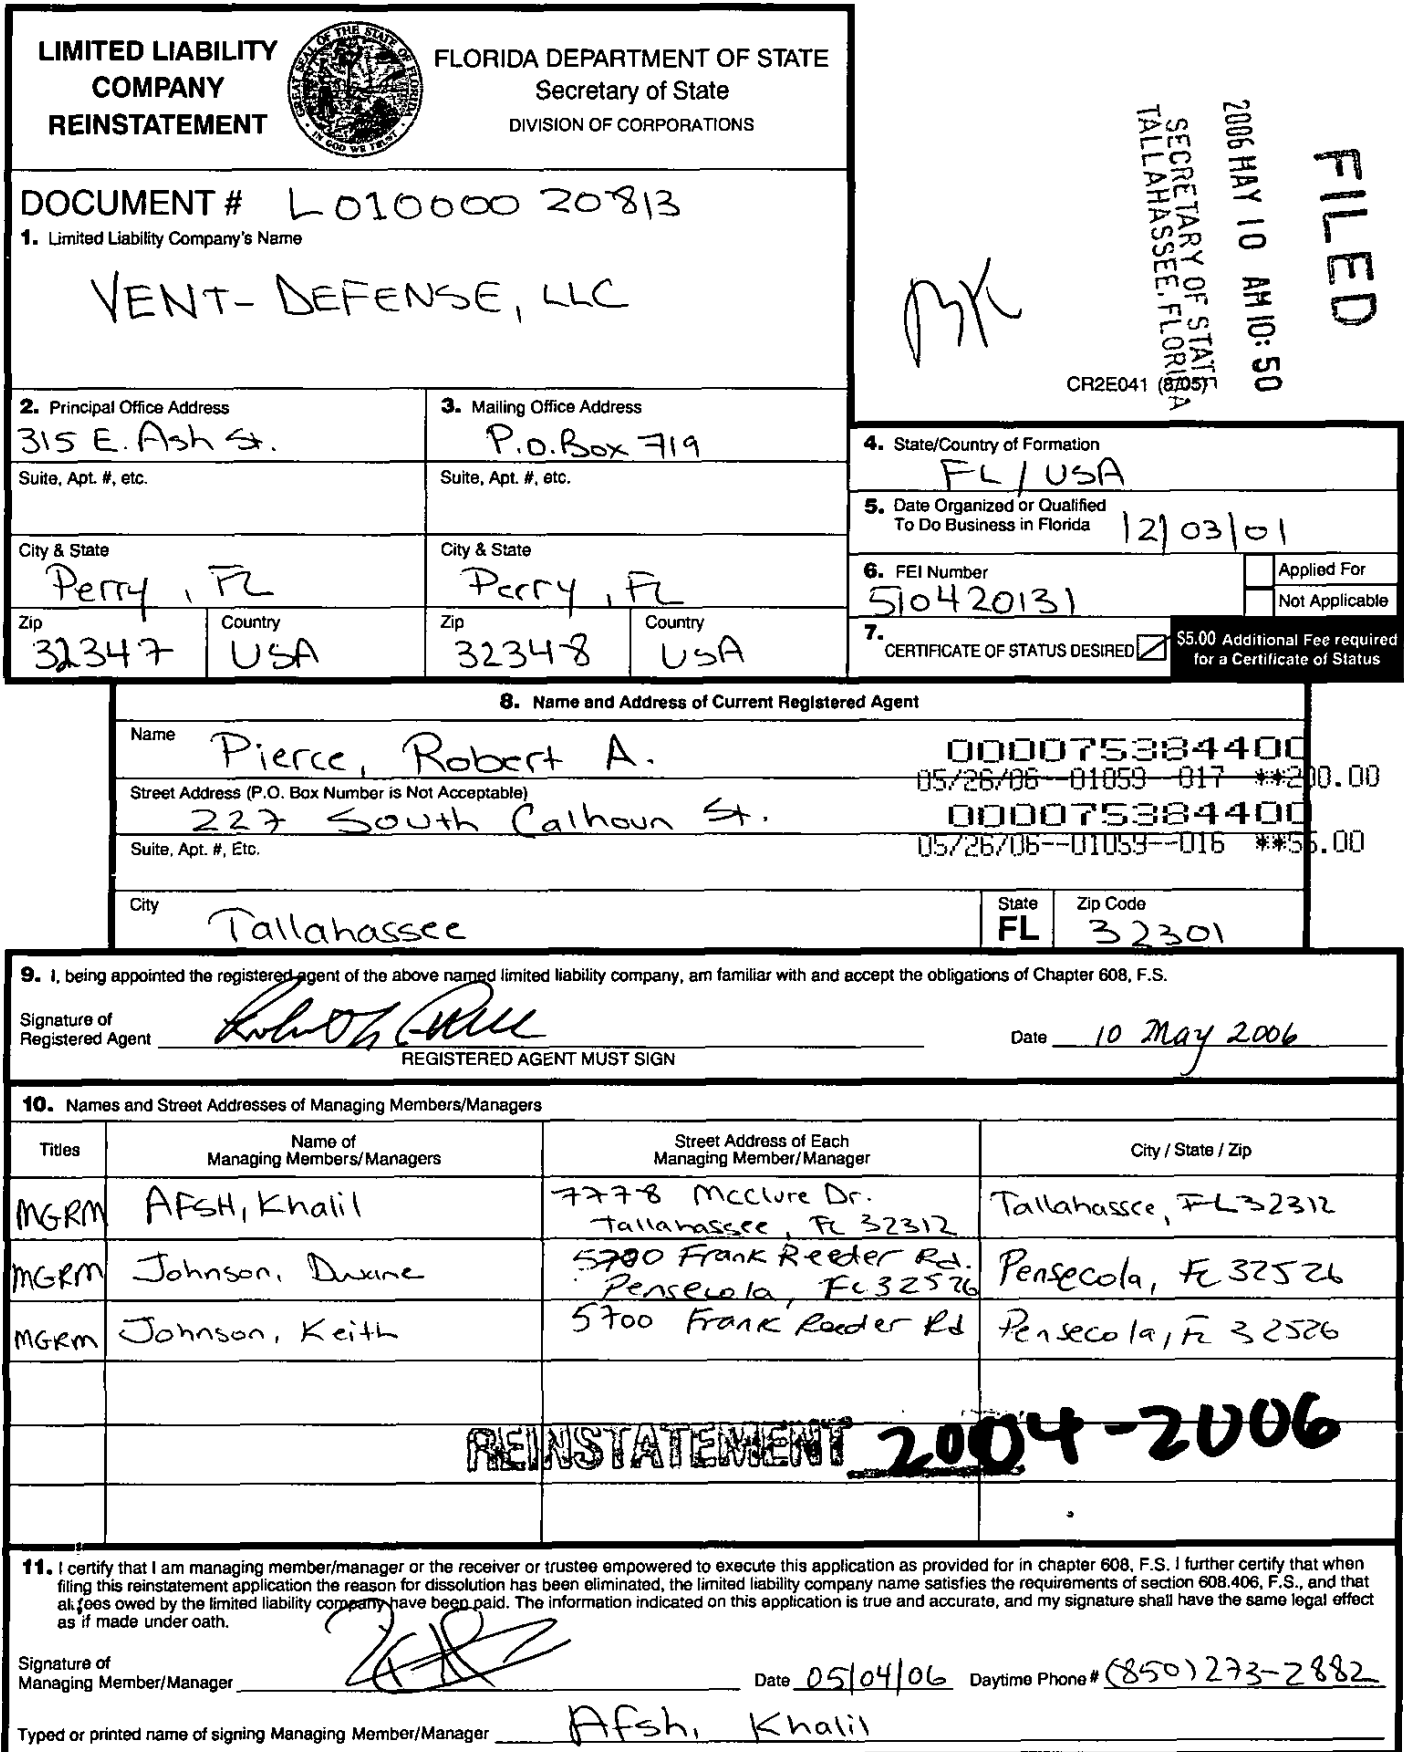 LIMITED LIABILITY
COMPANY
REINSTATEMENT
GREAT SEAL OF THE STATE OF FLORIDA
IN GOD WE TRUST
FLORIDA DEPARTMENT OF STATE
Secretary of State
DIVISION OF CORPORATIONS
FILED
2006 MAY 10 AM 10:50
SECRETARY OF STATE
TALLAHASSEE, FLORIDA
DOCUMENT # L01000020813
1. Limited Liability Company's Name
VENT-DEFENSE, LLC
BK
CR2E041 (8/05)
2. Principal Office Address
315 E. Ash St.
3. Mailing Office Address
P.O. Box 719
Suite, Apt. #, etc.
Suite, Apt. #, etc.
City & State
Perry, FL
City & State
Perry, FL
Zip
32347
Country
USA
Zip
32348
Country
USA
4. State/Country of Formation
FL / USA
5. Date Organized or Qualified
To Do Business in Florida 12/03/01
6. FEI Number
510420131
Applied For
Not Applicable
7. CERTIFICATE OF STATUS DESIRED
$5.00 Additional Fee required
for a Certificate of Status
8. Name and Address of Current Registered Agent
Name Pierce, Robert A.
000075384400
05/26/06--01059--017 **200.00
Street Address (P.O. Box Number is Not Acceptable)
227 South Calhoun St.
000075384400
05/26/06--01059--016 **55.00
Suite, Apt. #, Etc.
City Tallahassee
State
FL
Zip Code
32301
9. I, being appointed the registered agent of the above named limited liability company, am familiar with and accept the obligations of Chapter 608, F.S.
Signature of
Registered Agent
REGISTERED AGENT MUST SIGN
Date 10 May 2006
10. Names and Street Addresses of Managing Members/Managers
Titles
Name of
Managing Members/Managers
Street Address of Each
Managing Member/Manager
City / State / Zip
MGRM AFSH, Khalil 7778 McClure Dr. Tallahassee, FL 32312
Tallahassee, FL 32312
MGRM Johnson, Dwane 5700 Frank Reeder Rd. Pensecola, FL 32526
Pensecola, FL 32526
MGRM Johnson, Keith 5700 Frank Reeder Rd Pensecola, FL 32526
REINSTATEMENT 2004-2006
11. I certify that I am managing member/manager or the receiver or trustee empowered to execute this application as provided for in chapter 608, F.S. I further certify that when
filing this reinstatement application the reason for dissolution has been eliminated, the limited liability company name satisfies the requirements of section 608.406, F.S., and that
all fees owed by the limited liability company have been paid. The information indicated on this application is true and accurate, and my signature shall have the same legal effect
as if made under oath.
Signature of
Managing Member/Manager
Date 05/04/06 Daytime Phone # (850) 273-2882
Typed or printed name of signing Managing Member/Manager Afsh, Khalil